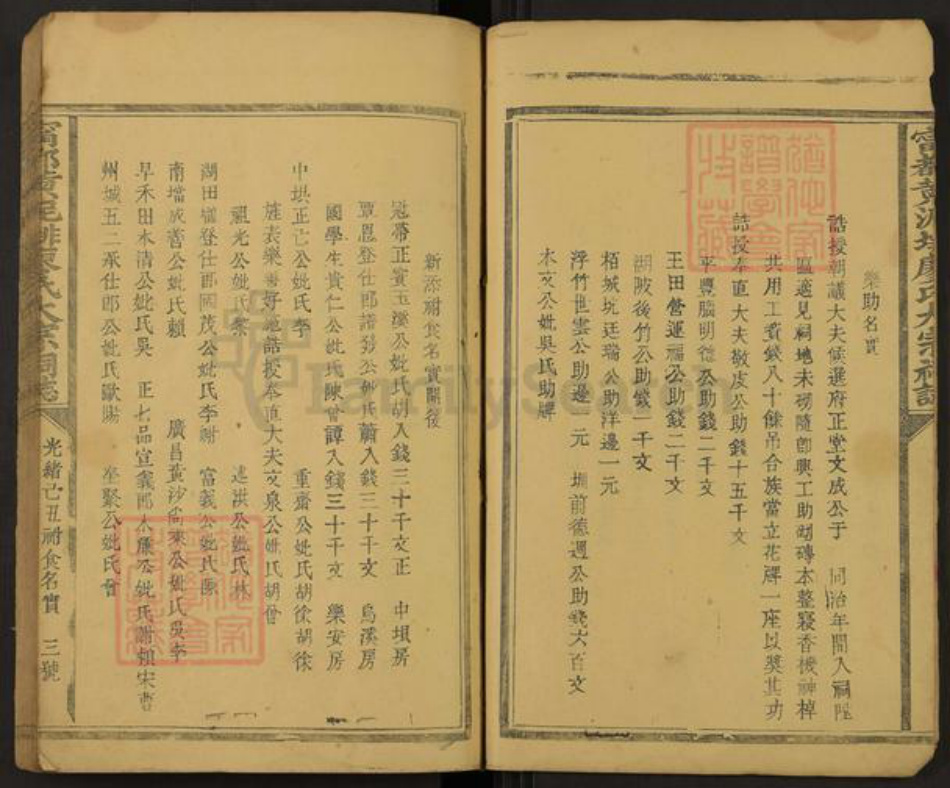 樂助名實
誥授朝議大夫候選府正堂文成公于 同治年間入祠陞
區適見祠地未砌隨卽興工助砌磚本整寢香機神棹
共用工費錢八十餘吊合族當立花牌一座以獎其功
誥授奉直大夫敬皮公助錢十五千文
平豐腦明德公助錢二千文
王田營運福公助錢二千文
湖陂後竹公助錢一千文
栢城坑廷瑞公助洋邊一元
浮竹世雲公助邊一元 壩前德週公助錢六百文
木文公妣吳氏助牌
新添祔食名實開後
冠帶正賓玉溪公妣氏胡入錢三十千文正 中埧房
覃恩登仕郎諮發公妣氏蕭入錢三十千文 烏溪房
國學生貴仁公妣氏陳曾譚入錢三十千文 樂安房
中垬正亡公妣氏李 重齋公妣氏胡徐胡徐
旌表樂善好施誥授奉直大夫文泉公妣氏胡曾
祖光公妣氏黎 述洪公妣氏林
湖田 登仕郎國茂公妣氏李謝 富義公妣氏陳
南壋成善公妣氏賴 廣昌黃沙 來公妣氏吳李
早禾田木清公妣氏吳 正七品宣義郎人 公妣氏謝賴宋曹
州城五二承仕郎公妣氏歐陽 聖聚公妣氏曾
光緒亡丑祔食名實 三號
FamilySearch